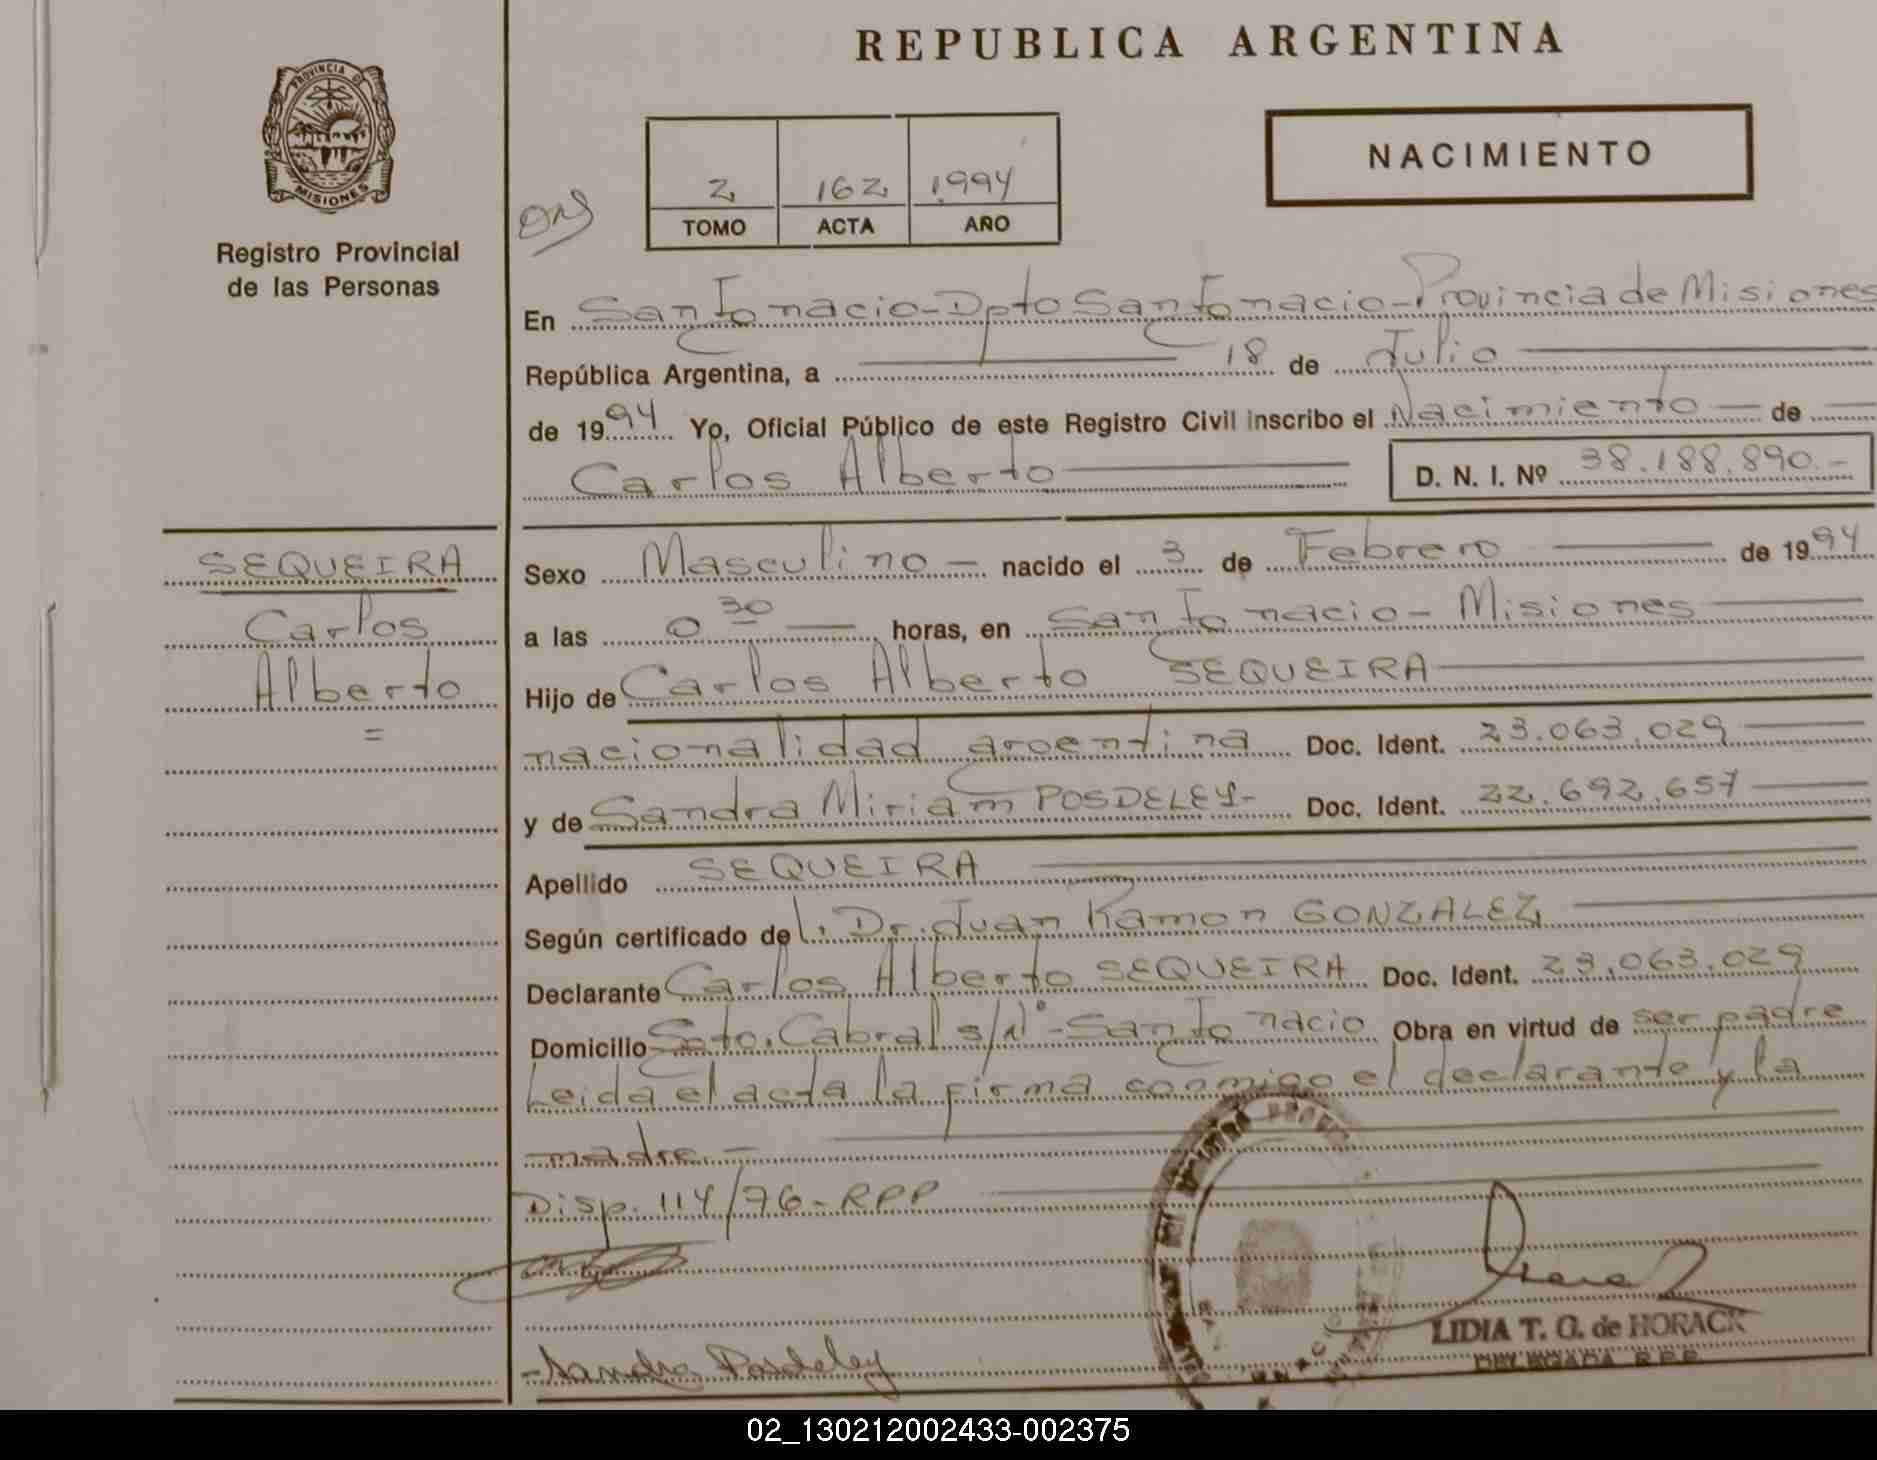 REPUBLICA ARGENTINA
PROVINCIA DE
MISIONES
Registro Provincial
de las Personas
NACIMIENTO
2 162 1994
TOMO ACTA AÑO
En San Ignacio - Dpto San Ignacio - Provincia de Misiones
República Argentina, a 18 de Julio
de 1994 Yo, Oficial Público de este Registro Civil inscribo el Nacimiento de
Carlos Alberto D. N. I. Nº 38.188.890.-
SEQUEIRA
Carlos
Alberto
=
Sexo Masculino - nacido el 3 de Febrero de 1994
a las 0 30 horas, en San Ignacio - Misiones
Hijo de Carlos Alberto SEQUEIRA
nacionalidad argentina Doc. Ident. 23.063.029
y de Sandra Miriam POSDELEY- Doc. Ident. 22.692.657
Apellido SEQUEIRA
Según certificado del. Dr. Juan Ramon GONZALEZ
Declarante Carlos Alberto SEQUEIRA Doc. Ident. 23.063.029
Domicilio Sgto. Cabral s/Nº - San Ignacio Obra en virtud de ser padre
Leida el acta la firma conmigo el declarante y la
madre. -
Disp. 114/76 - RPP
Sandra Posdeley
LIDIA T. G. de HORACK
DELEGADA R.P.P.
02_130212002433-002375